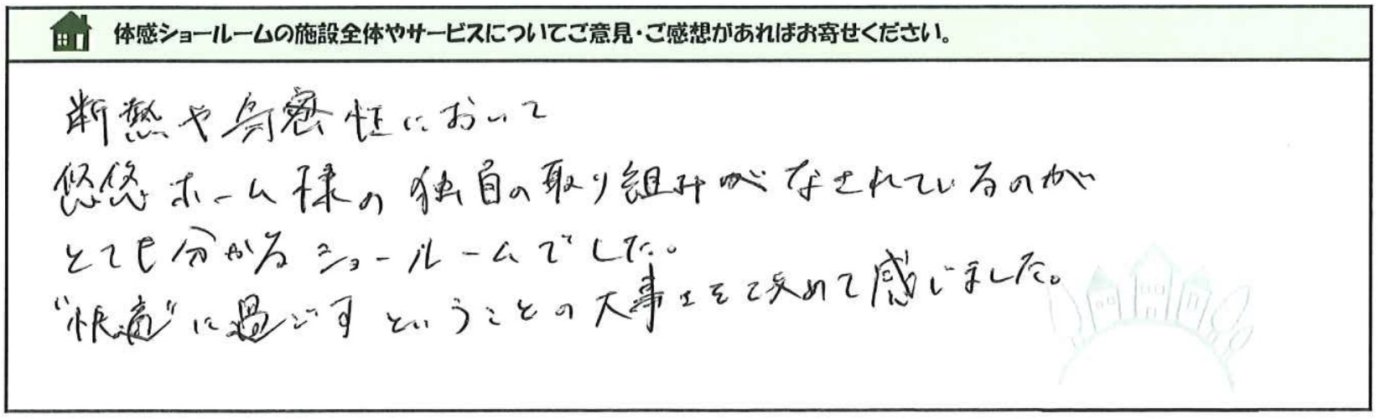 体感ショールームの施設全体やサービスについてご意見・ご感想があればお寄せください。
断熱や気密性において
悠悠ホーム様の独自の取り組みがなされているのが
とても分かるショールームでした。
"快適"に過ごすということの大事さを改めて感じました。